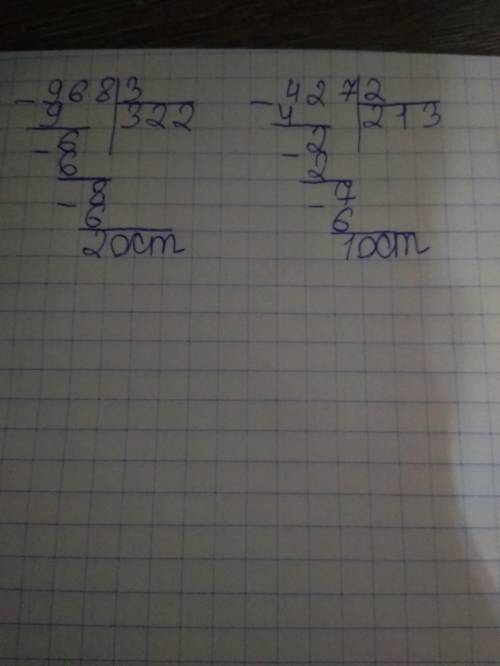 - 968 | 3
9 | 322
- 6
6
- 8
6
2 ост
- 427 | 2
4 | 213
- 2
2
- 7
6
1 ост